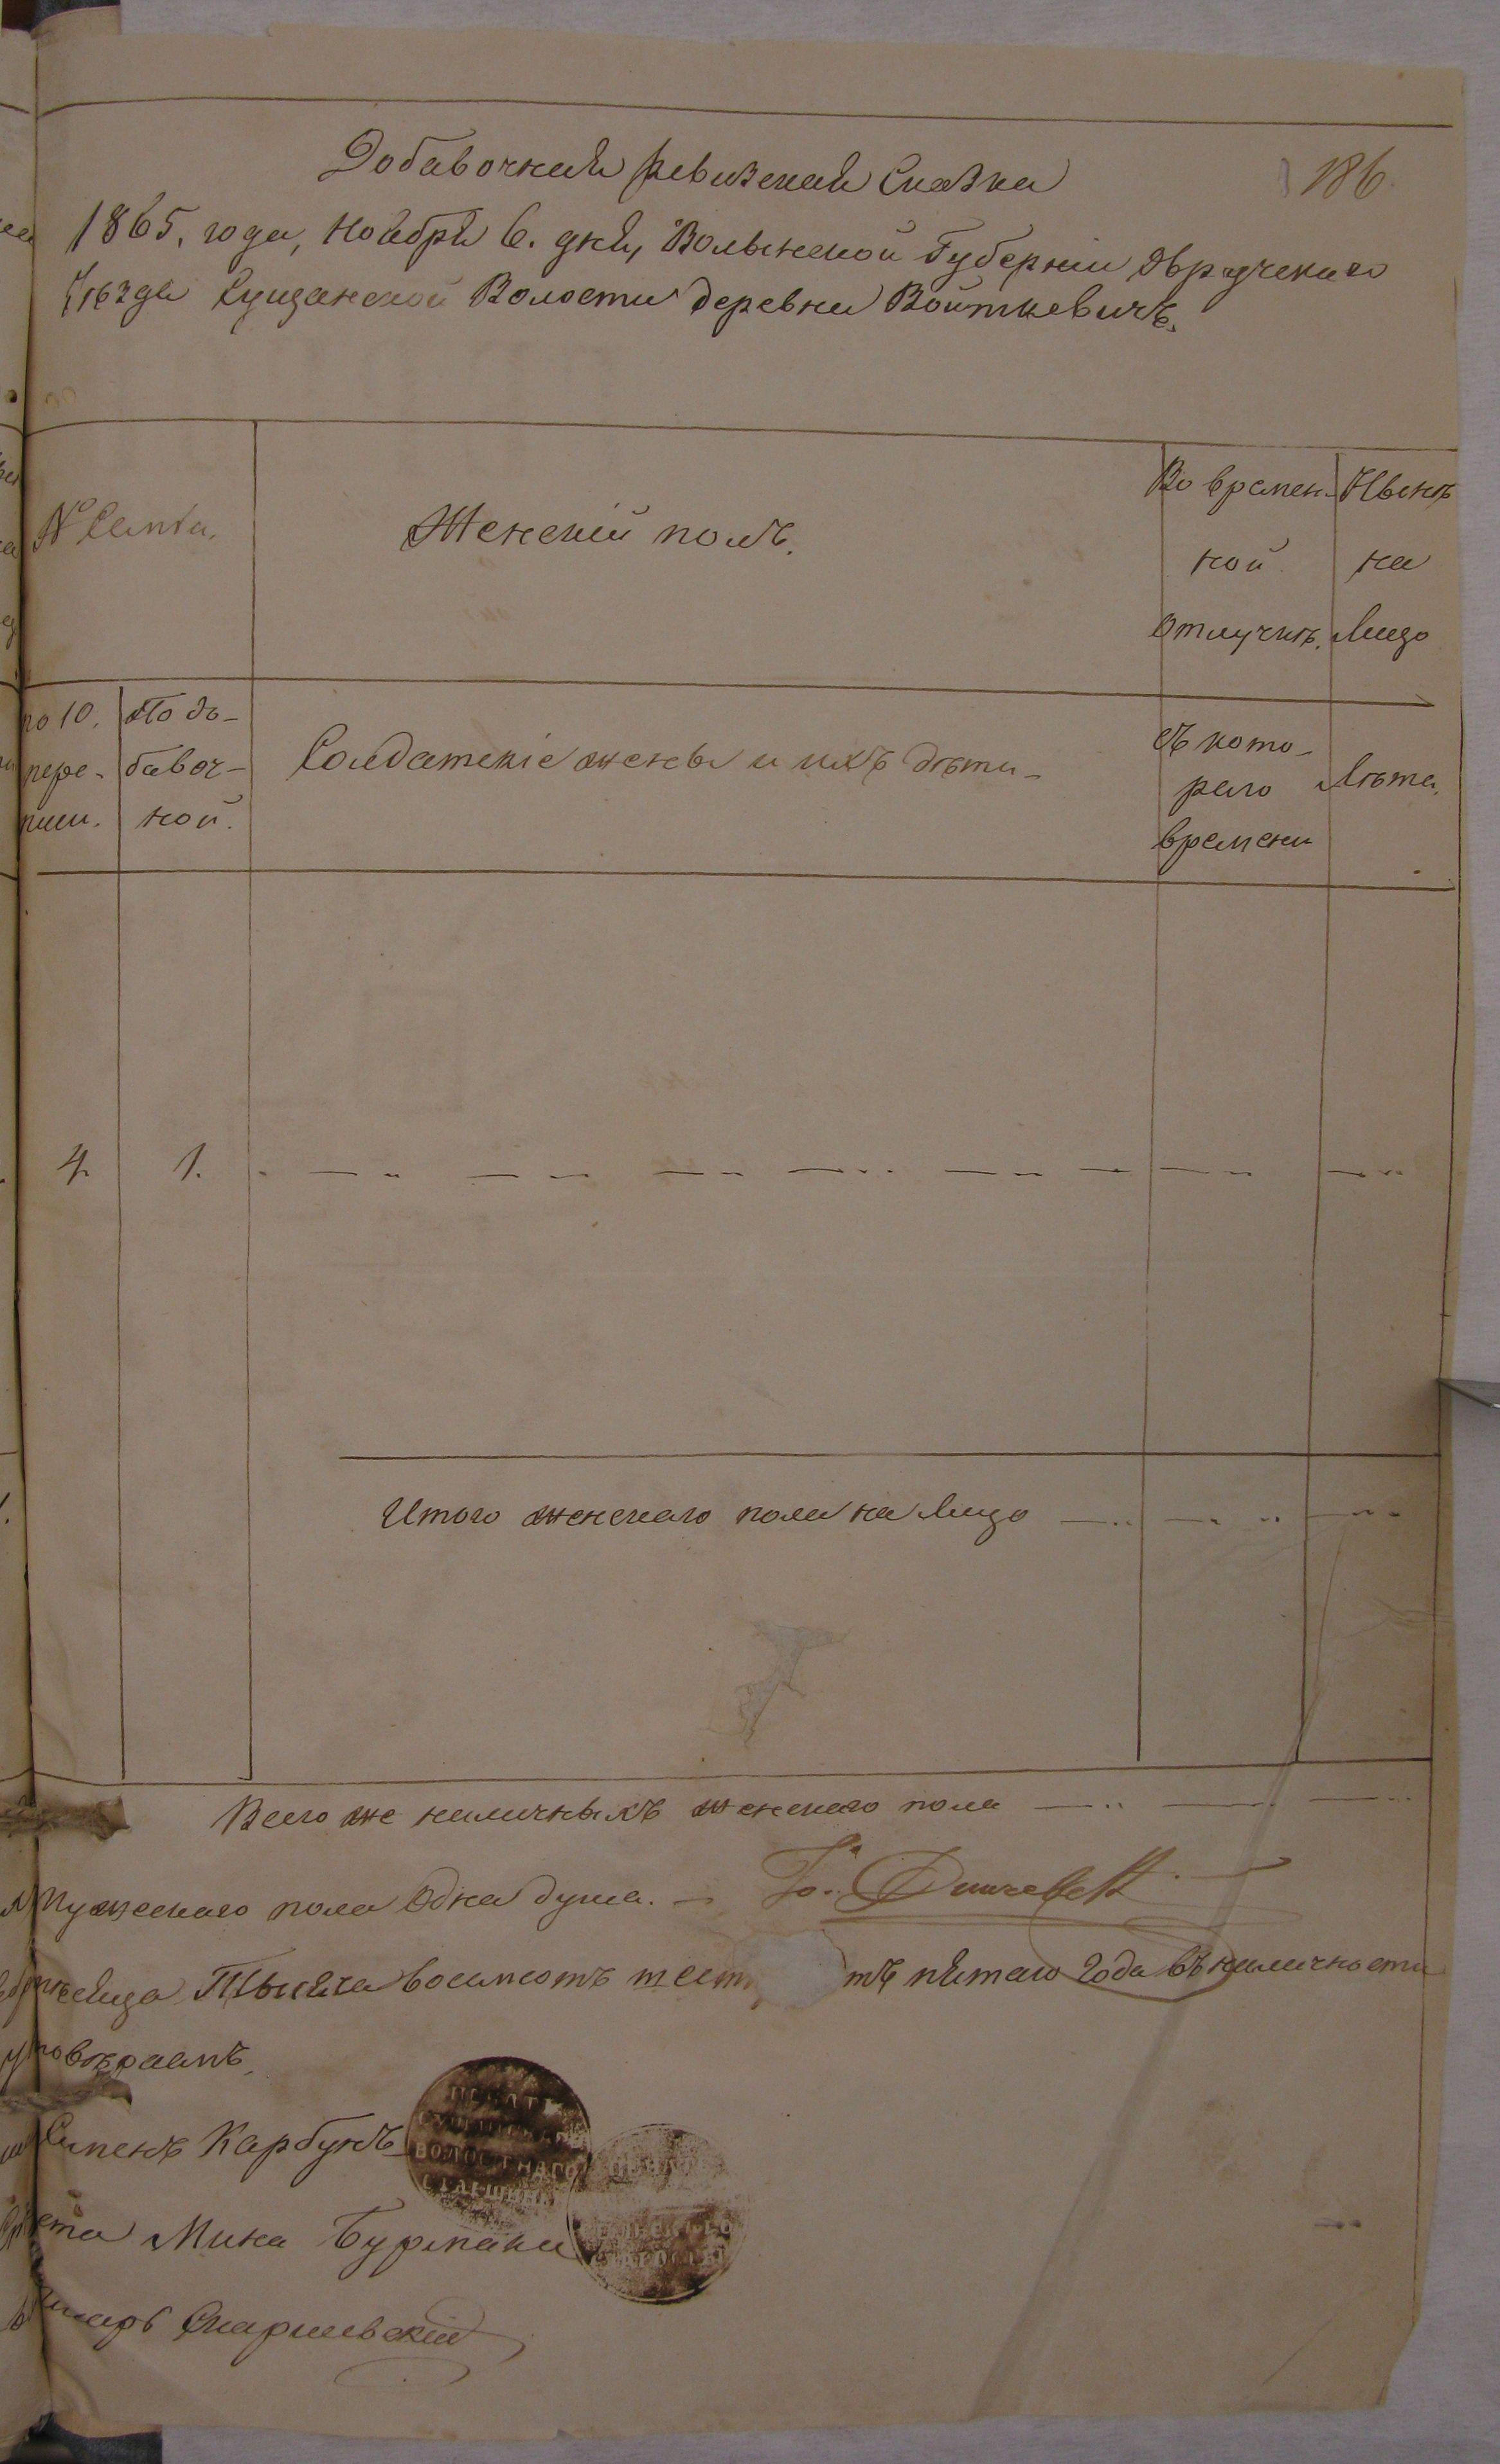 Добавочная Ревизская Сказка
186.
1865. года, Ноября 6. дня, Волынской Губерніи Овручскаго
Уѣзда Сущанской Волости деревни Войткевичъ.
№ Семьи.
Женскій полъ.
Во времен-
ной
отлучкѣ.
Нынѣ
на
Лицо
по 10.
пере-
писи.
По до-
бавоч-
ной.
Солдатскіе жены и ихъ дѣти
съ кото-
раго
времени
Лѣта.
4
1.
Итого женскаго пола на Лицо
Всего же наличныхъ женскаго пола
Мужескаго пола Одна душа.
Тысяча восемсотъ шест тъ пятаго Года въ наличности
Семенъ Карбунъ
ПЕЧАТЬ
ВОЛОСТНАГО
СТАРШИНЫ
Мина Бурмака
Скаршевскій